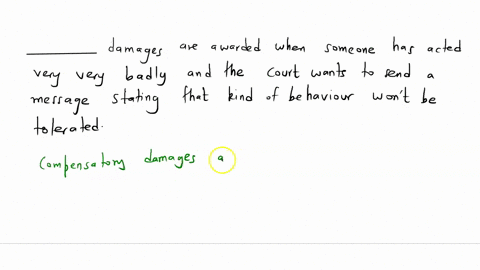 ________ damages are awarded when someone has acted
very very badly and the court wants to send a
message stating that kind of behaviour won't be
tolerated.
Compensatory damages a